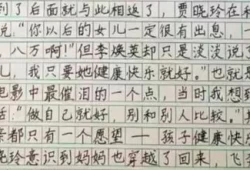 到了后面就与此相反了，贾晓玲在
说“你以后的女儿一定很有出息，一
八万啊！”但李焕英却只是淡淡说
儿，我只要她健康快乐就好。”也就是
电影中最催泪的一个点，当时我想到
话：“做自己就好，别和别人比较。”其
亲都只有一个愿望——孩子健康快
晓玲意识到妈妈也穿越了回来，飞